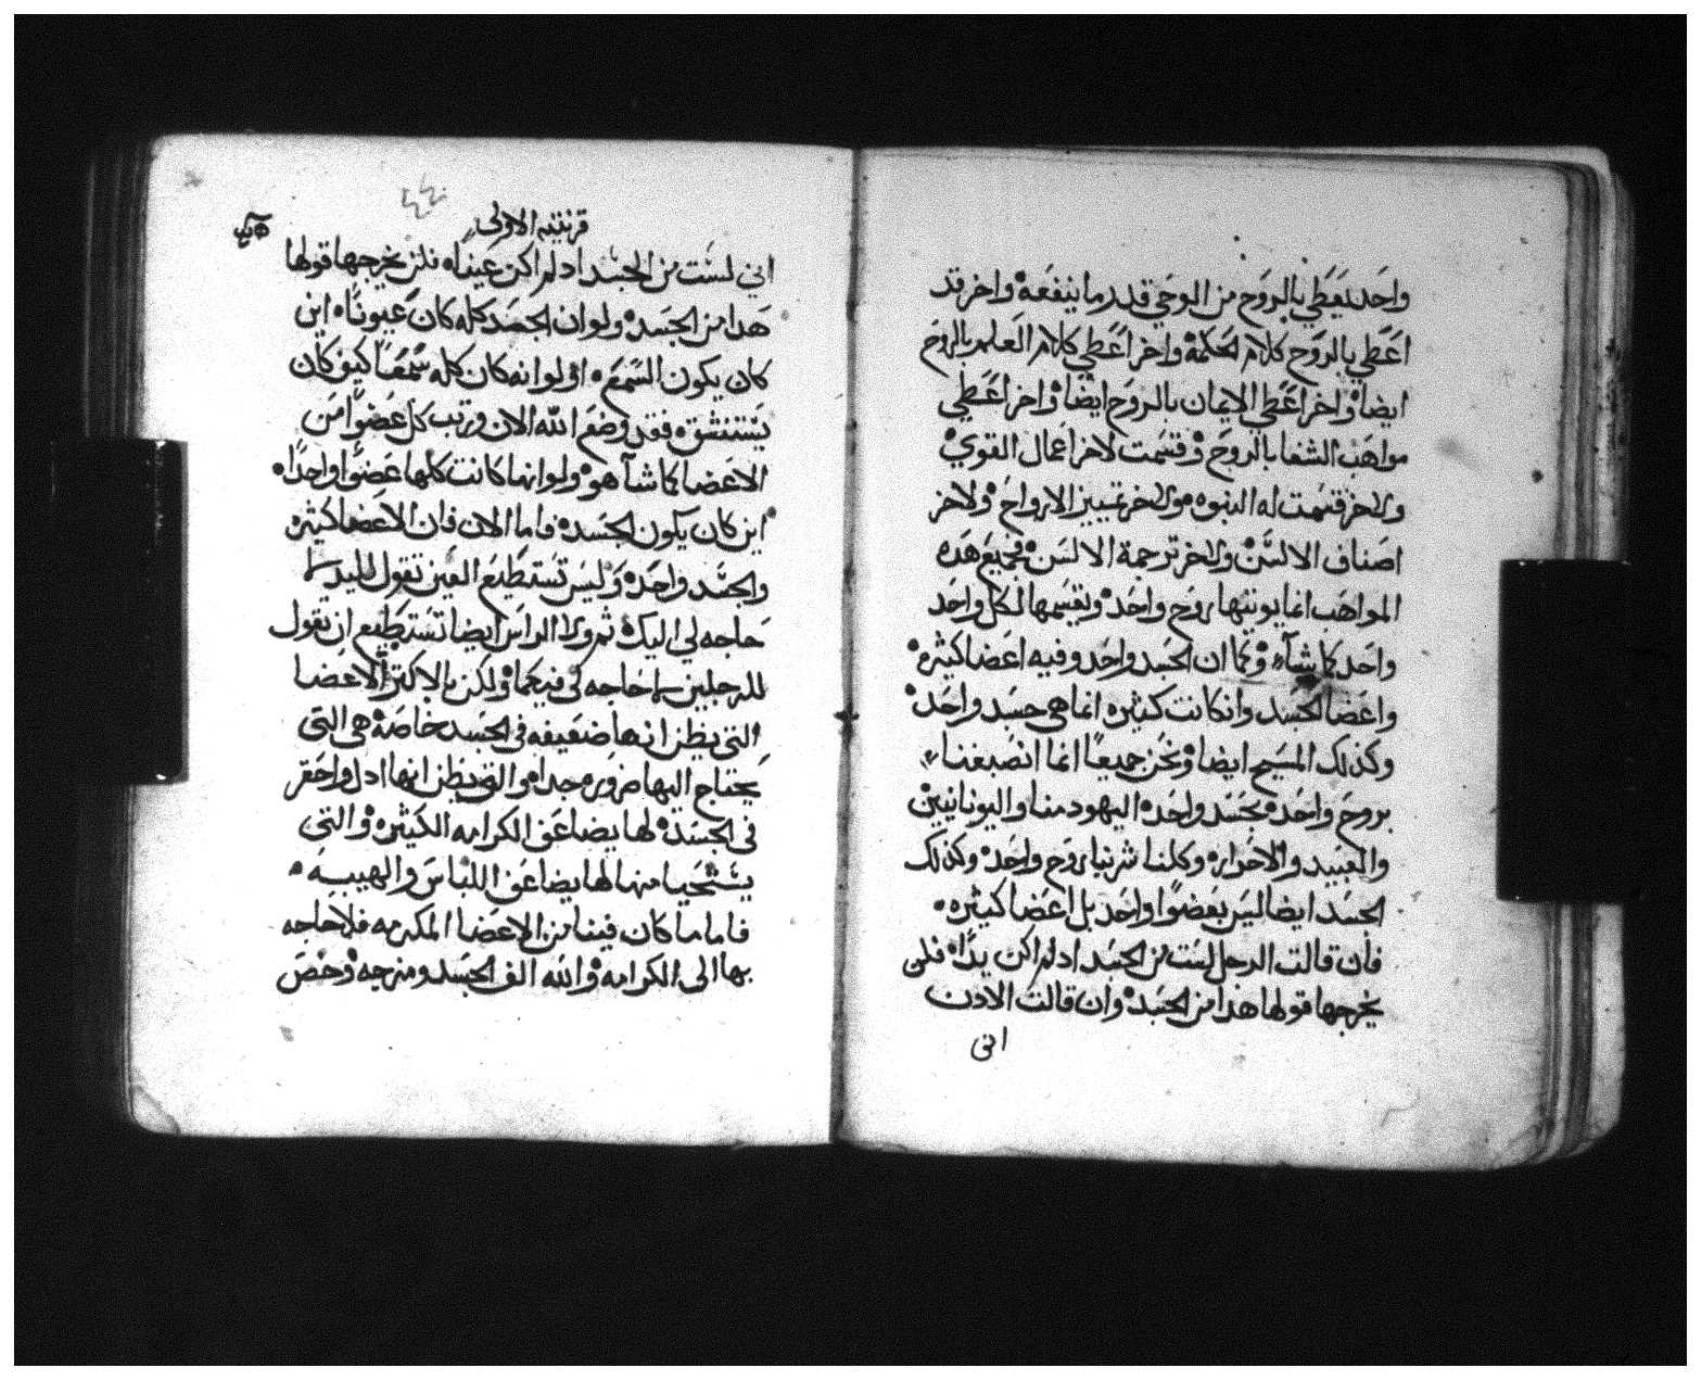 واحد يعطي بالروح من الوحي قدر ما ينفعه واخر قد
اعطي بالروح كلام الحكمة واخر اعطي كلام العلم بالروح
ايضا واخر اعطي الايمان بالروح ايضا واخر اعطي
مواهب الشفا بالروح وقسمت لاخر اعمال القوي
ولاخر قسمت له النبوه ولاخر تمييز الارواح ولاخر
اصناف الالسن ولاخر ترجمة الالسن فجميع هذه
المواهب انما يوتيها روح واحد ويقسمها لكل واحد
واحد كما يشآء وكما ان الجسد واحد وفيه اعضا كثيره
واعضا الجسد وان كانت كثيره انما هي جسد واحد
وكذلك المسيح ايضا ونحن جميعًا انما انصبغنا
بروح واحد بجسد واحد اليهود منا واليونانيين
والعبيد والاحرار وكلنا شربنا روح واحد وكذلك
الجسد ايضا ليس بعضوًا واحد بل اعضا كثيره
فان قالت الرجل لست من الجسد اد لم اكن يدًا فلن
يخرجها قولها هدا من الجسد وان قالت الادن
انى
قرنتيه الاولى
اني لست من الجسد اد لم اكن عينًا فلن يخرجها قولها
هدا من الجسد ولو ان الجسد كله كان عيونًا اين
كان يكون السمع او لو انه كان كله سمعًا كيف كان
يستنشق فقد وضع الله الان ورتب كل عضوًا من
الاعضا كما شآ هو ولو انها كانت كلها عضوًا واحدًا
اين كان يكون الجسد فاما الان فان الاعضا كثيره
والجسد واحد وليس تستطيع العين تقول لليد لا
حاجه لي اليك ثم ولا الراس ايضا تستطيع ان تقول
للرجلين لا حاجه لي فيكما ولكن بالاكثر الاعضا
التي يظن انها ضعيفه في الجسد خاصة هي التي
يحتاج اليها ضروره جدا والتي يظن انها ادل واحقر
في الجسد لها يضاعف الكرامه الكثيره والتي
يستحيا منها لها يضاعف اللباس والهيبه
فاما ما كان فينا من الاعضا المكرمه فلا حاجه
بها الى الكرامه والله الف الجسد ومزجه وخص